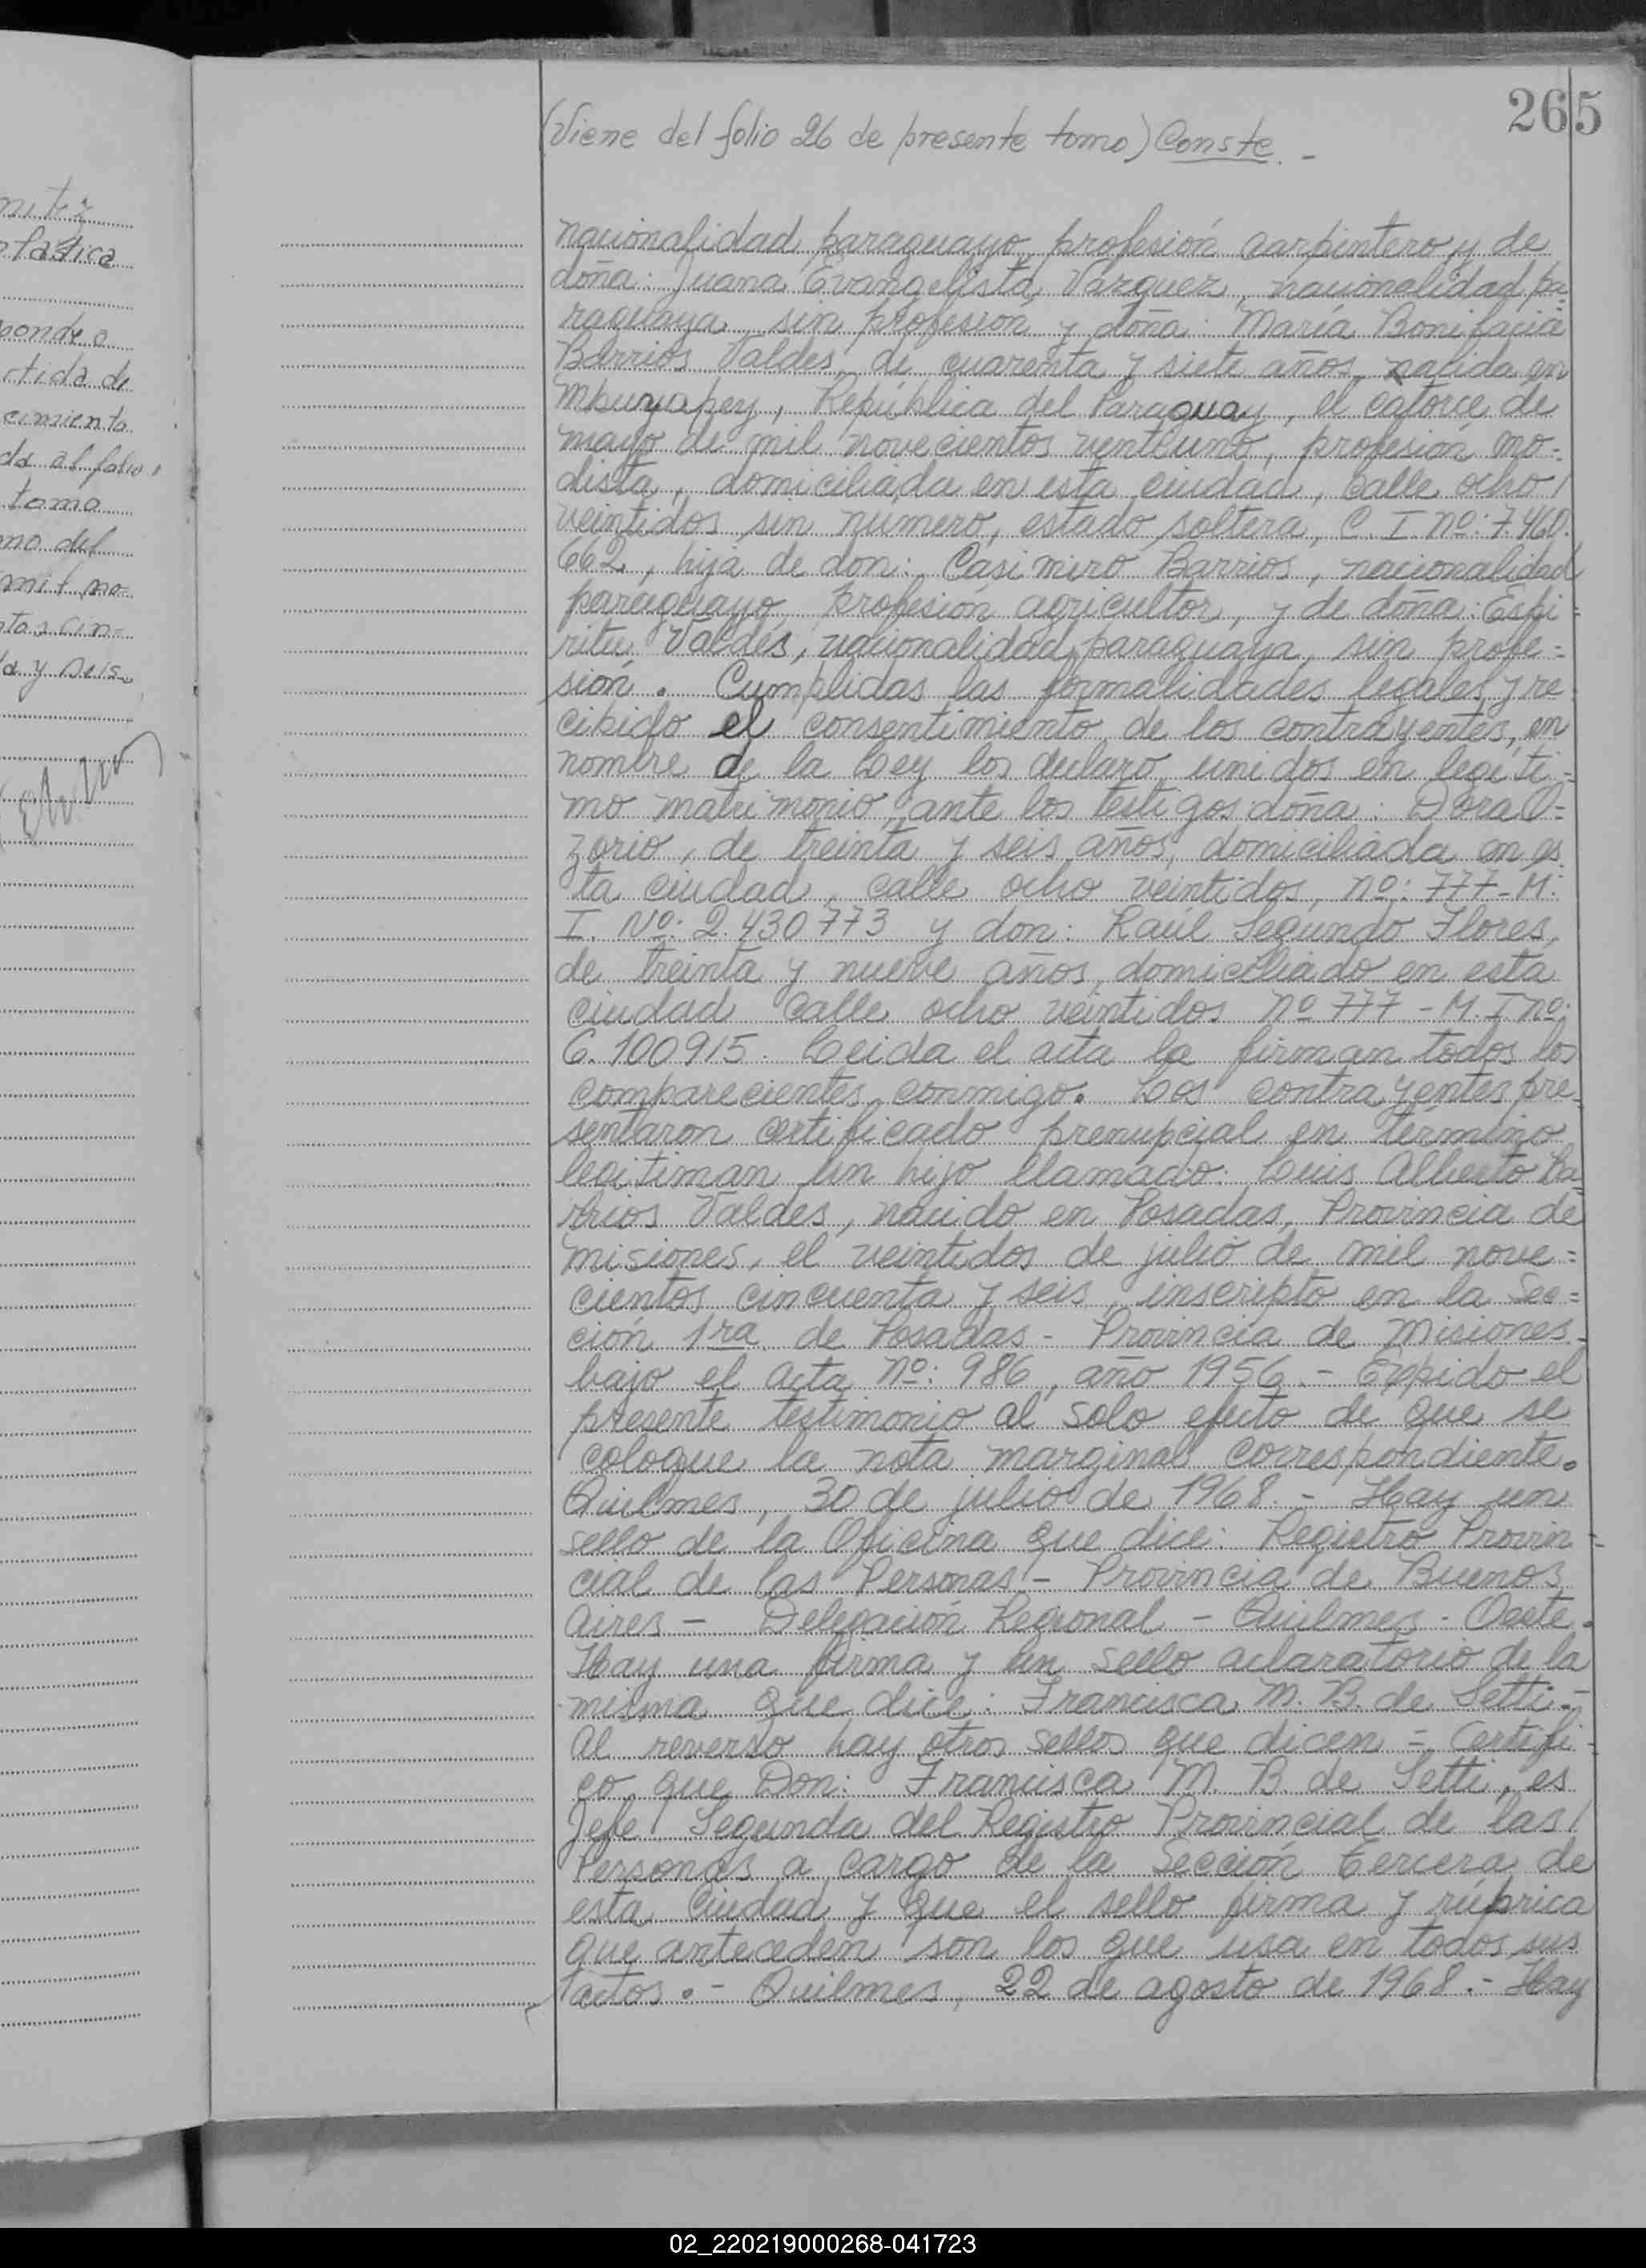 265
(Viene del folio 26 de presente tomo) Conste. -
nacionalidad paraguayo, profesión carpintero y de
doña: Juana Evangelista Vazquez, nacionalidad pa-
raguaya, sin profesión y doña: María Bonifacia
Barrios Valdes, de cuarenta y siete años, nacida en
Mbuyapey, República del Paraguay, el catorce de
mayo de mil novecientos ventiuno, profesión mo=
dista, domiciliada en esta ciudad, calle ocho/
veintidos sin numero, estado soltera, C. I. nº: 7.460.
662, hija de don: Casimiro Barrios, nacionalidad
paraguayo, profesión agricultor, y de doña: Espi=
ritu Valdes, nacionalidad paraguaya, sin profe=
sión. Cumplidas las formalidades legales y re
cibido el consentimiento de los contrayentes, en
nombre de la Ley los declaro unidos en legiti=
mo matrimonio, ante los testigos doña: Dora O=
zorio, de treinta y seis años, domiciliada en es
ta ciudad, calle ocho veintidos, nº: 777-M.
I. Nº: 2.430773 y don: Raúl Segundo Flores,
de treinta y nueve años, domiciliado en esta
ciudad calle ocho veintidos nº 777 - M. I nº:
6.100915. Leida el acta la firman todos los
comparecientes conmigo. Los contrayentes pre
sentaron certificado prenupcial en término
legitiman un hijo llamado: Luis Alberto Ba=
rrios Valdes, nacido en Posadas, Provincia de
misiones, el veintidos de julio de mil nove=
cientos cincuenta y seis, inscripto en la Sec=
ción 1ra de Posadas - Provincia de Misiones.
bajo el acta Nº: 986, año 1956. - Expido el
presente testimonio al solo efecto de que se
coloque la nota marginal correspondiente.
Quilmes, 30 de julio de 1968. - Hay un
sello de la Oficina que dice: Registro Provin=
cial de las Personas - Provincia de Buenos
Aires - Delegación Regional - Quilmes - Oeste.
Hay una firma y un sello aclaratorio de la
misma que dice: Francisca M. B. de Setti. -
Al reverso hay otros sellos que dicen - Certifi-
co que Don: Francisca M B de Setti, es
Jefe Segunda del Registro Provincial de las/
Personas a cargo de la Sección tercera de
esta Ciudad y que el sello firma y rúbrica
que anteceden son los que usa en todos sus
actos. - Quilmes, 22 de agosto de 1968. - Hay
02_220219000268-041723